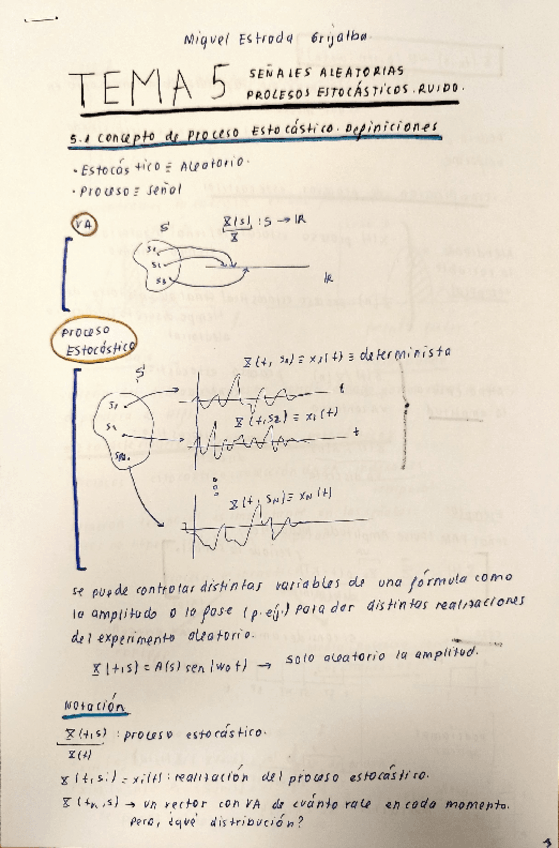 Miguel Estrada Grijalba.
TEMA 5 SEÑALES ALEATORIAS
PROCESOS ESTOCÁSTICOS. RUIDO.
5.1 Concepto de Proceso Estocástico. Definiciones
• Estocástico ≡ Aleatorio.
• Proceso ≡ señal
VA
S
X(s) : S → IR
X
S2
S1
S3
IR
PROCESO
ESTOCÁSTICO
S
X(t, s1) ≡ x1(t) ≡ determinista
S1
t
X(t, s2) ≡ x2(t)
S2
t
X(t, sN) ≡ xN(t)
se puede controlar distintas variables de una fórmula como
la amplitudo o la fase (p.ej.) para dar distintas realizaciones
del experimento aleatorio.
X(t,s) = A(s) sen(w0t) → solo aleatorio la amplitud.
Notación
X(t,s) : proceso estocástico.
X(t)
X(t, si) = xi(t) : realización del proceso estocástico.
X(tn, s) → un vector con VA de cuánto vale en cada momento.
Pero, ¿qué distribución?
1